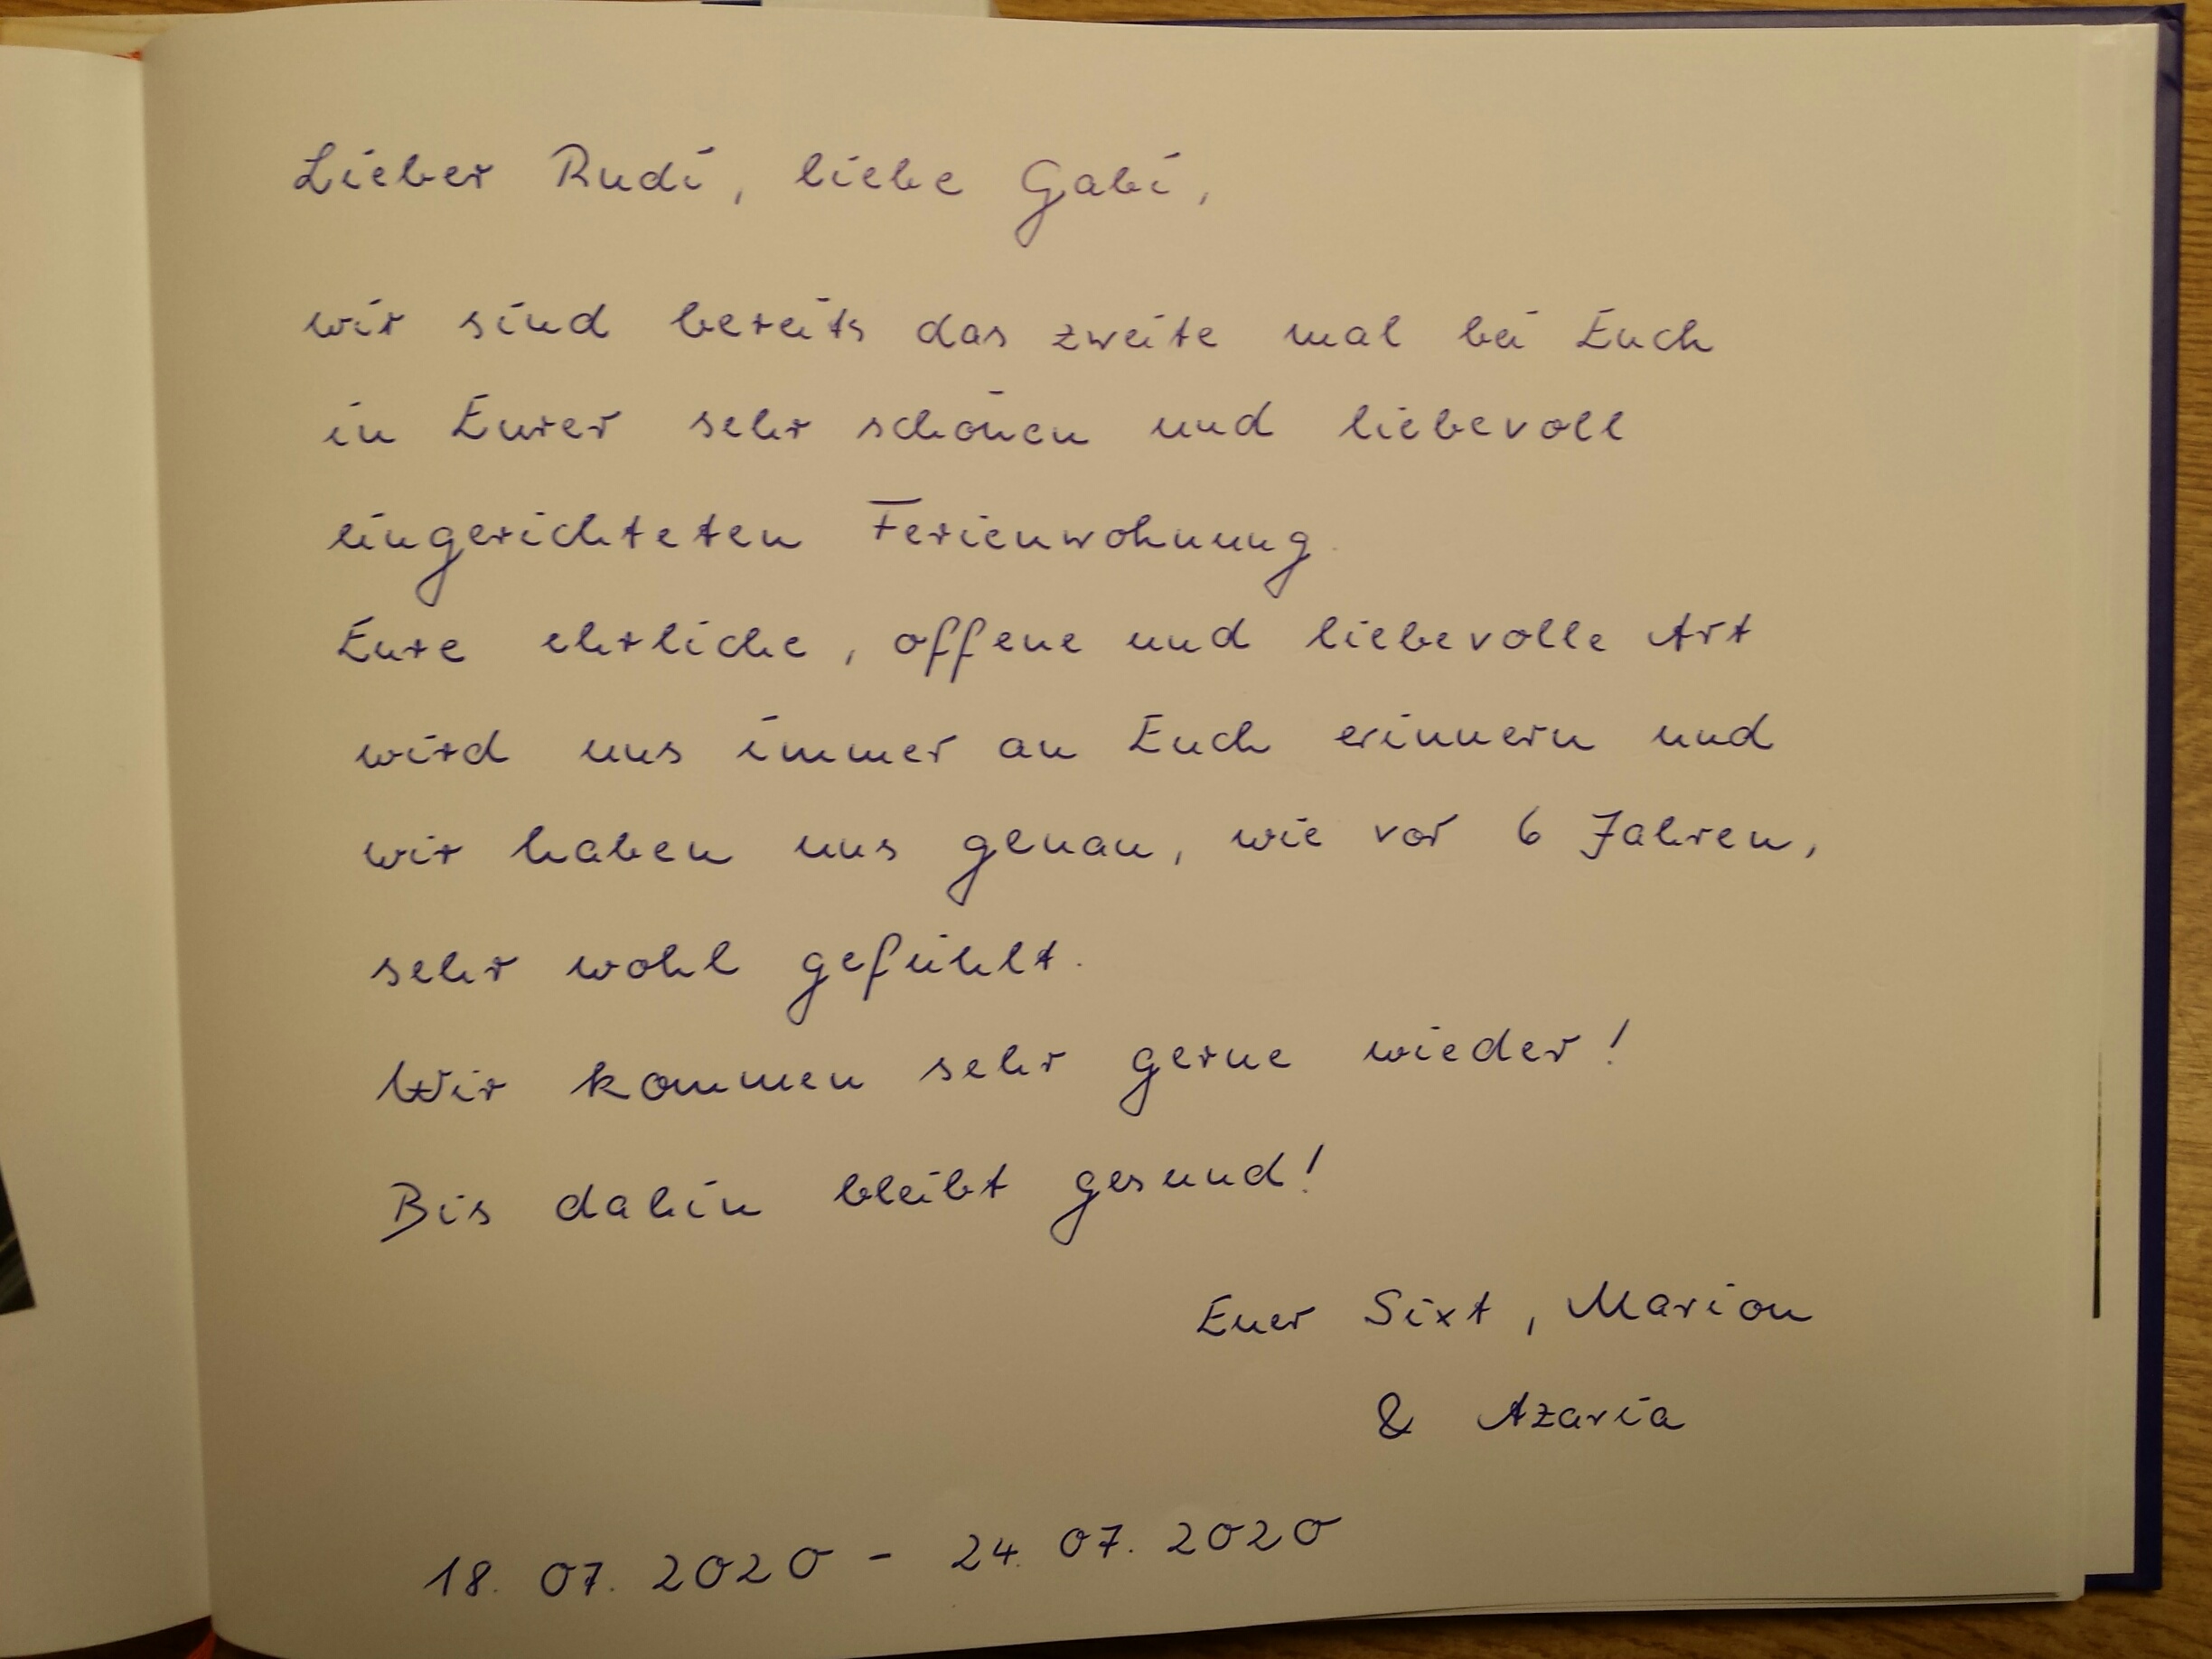 Lieber Rudi, liebe Gabi,
wir sind bereits das zweite mal bei Euch
in Eurer sehr schönen und liebevoll
eingerichteten Ferienwohnung.
Eure ehrliche, offene und liebevolle Art
wird uns immer an Euch erinnern und
wir haben uns genau, wie vor 6 Jahren,
sehr wohl gefühlt.
Wir kommen sehr gerne wieder!
Bis dahin bleibt gesund!
Euer Sixt, Marion
& Azaria
18. 07. 2020 - 24. 07. 2020